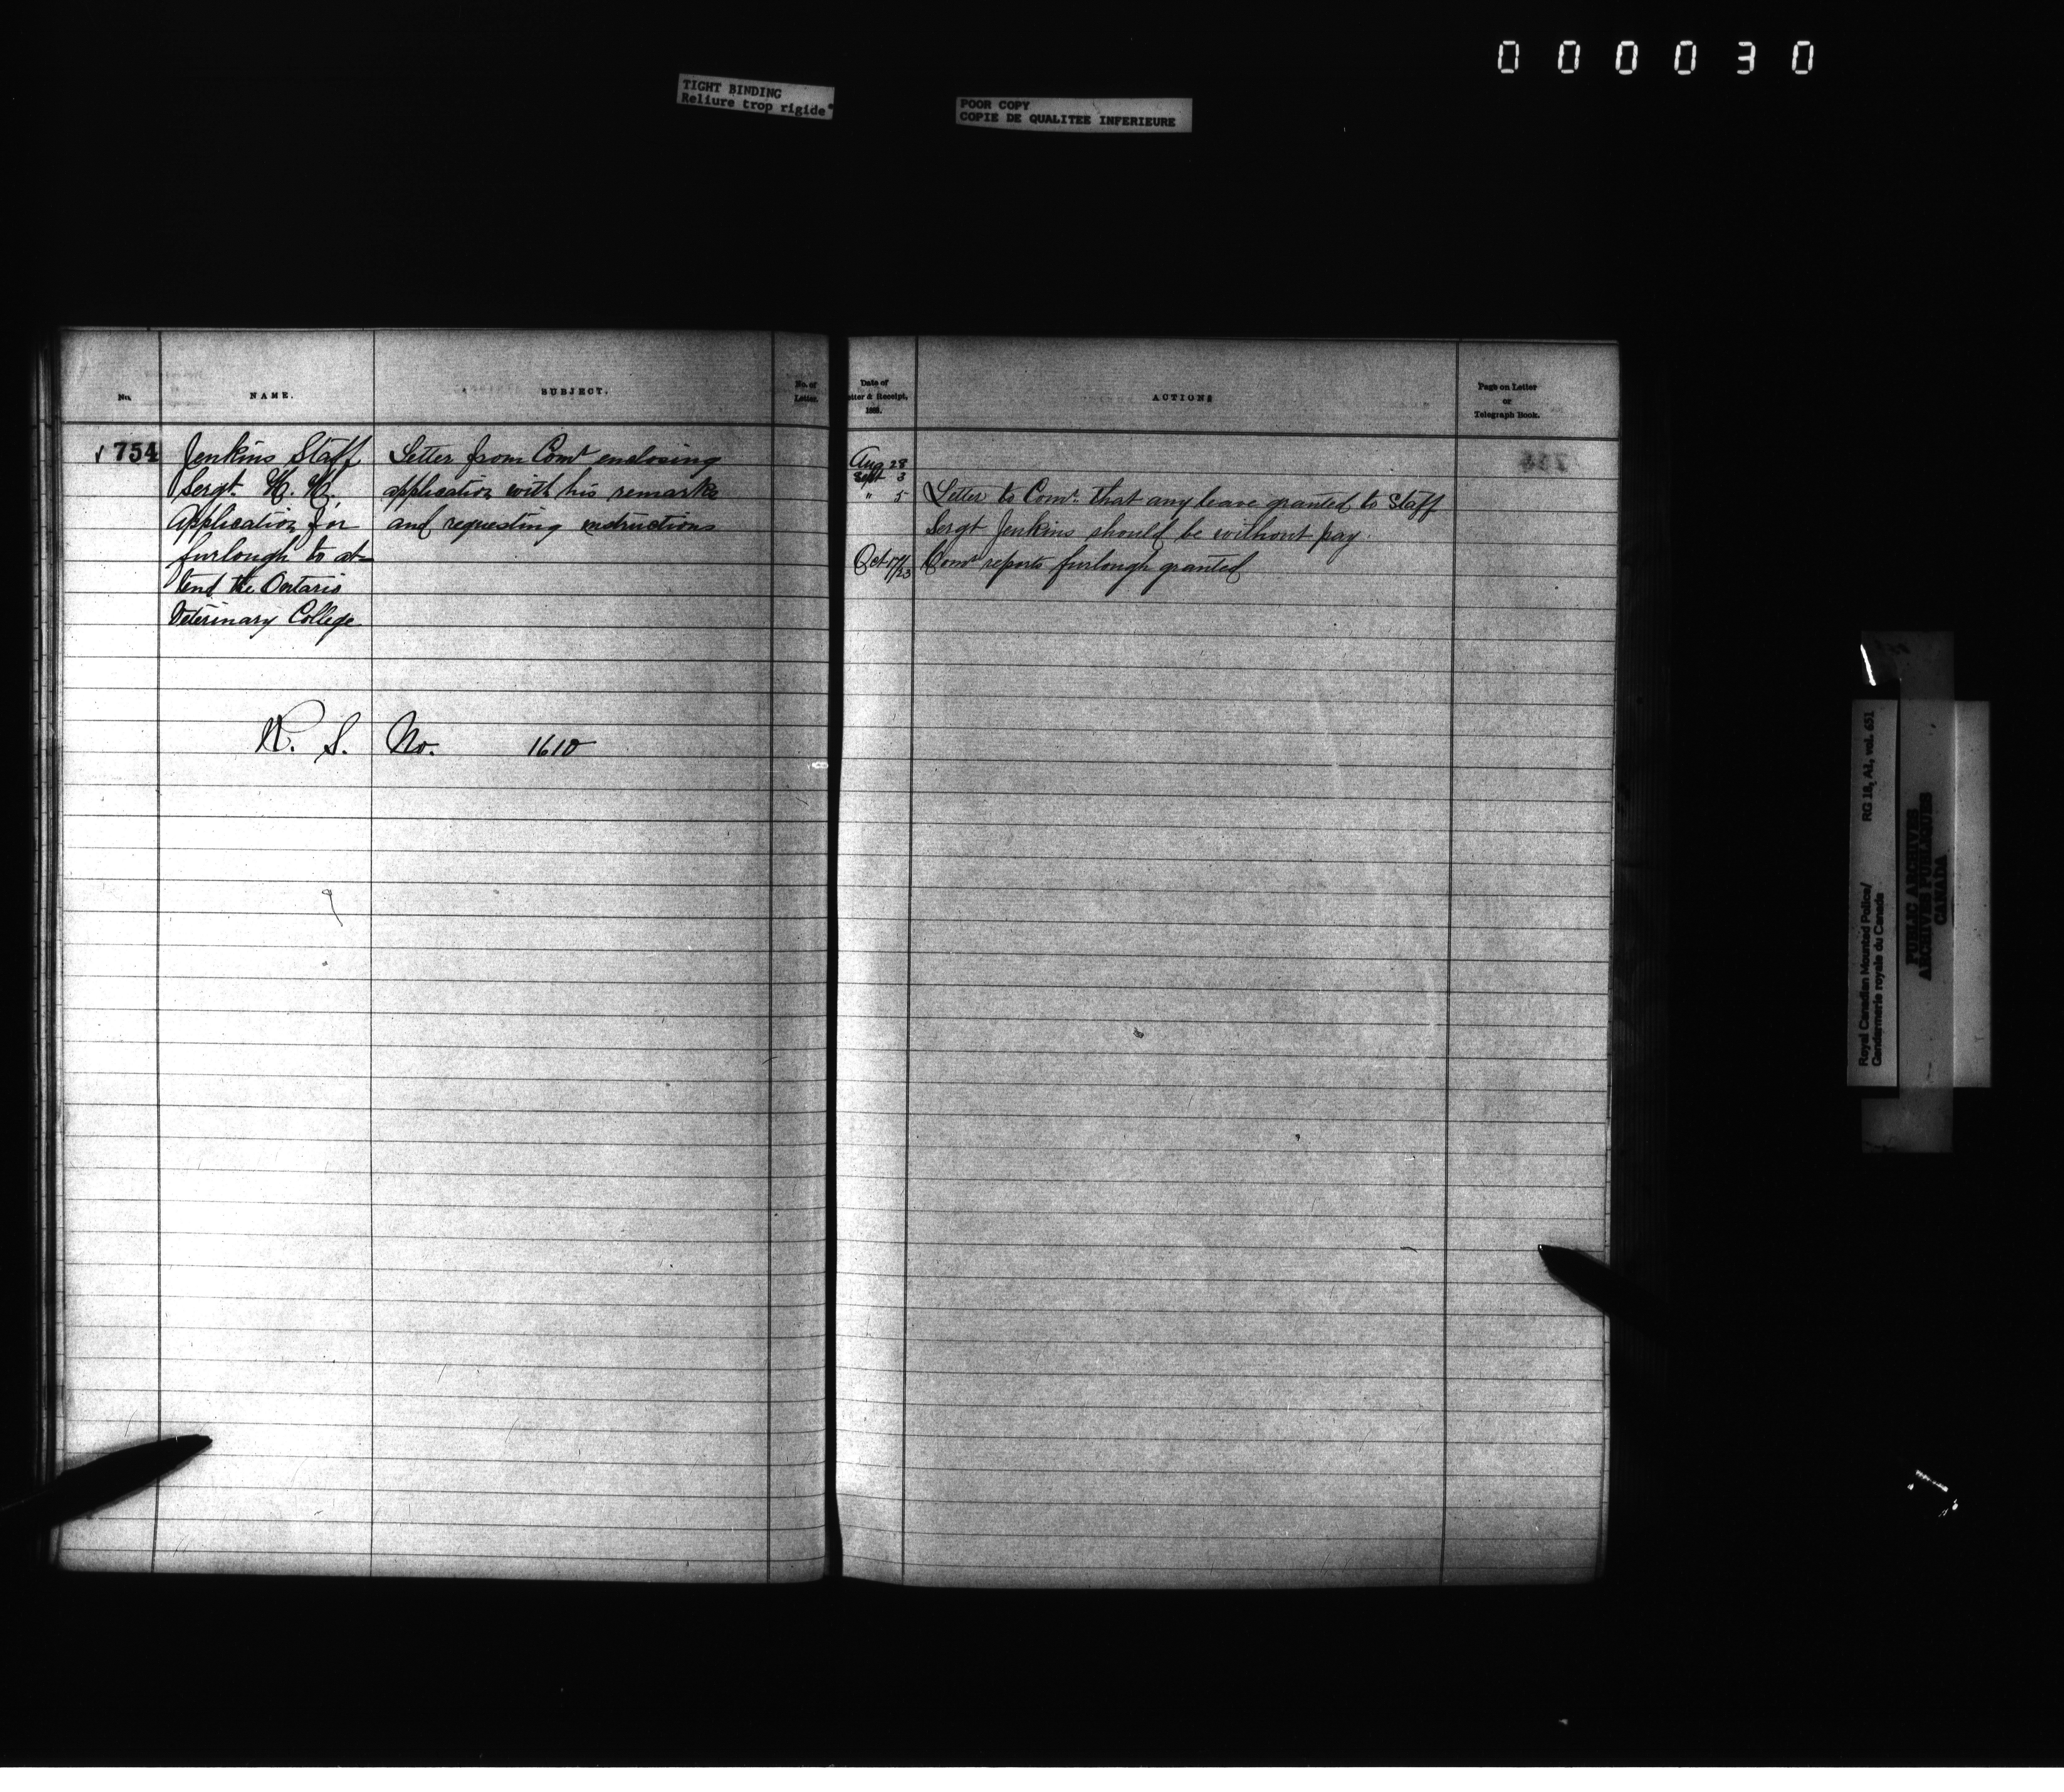 000030
TIGHT BINDING
Reliure trop rigide
POOR COPY
COPIE DE QUALITEE INFERIEURE
No.
NAME.
SUBJECT.
No. of
Letter.
754
Jenkins Staff
Sergt. H. H.
Application for
furlough to at-
tend the Ontario
Veterinary College
Letter from Comr enclosing
application with his remarks
and requesting instructions
R. S. No. 1610
Date of
Letter & Receipt,
188
ACTIONS
Page on Letter
or
Telegraph Book.
Aug 28
Sept 3
" 5 Letter to Comr. that any leave granted to Staff
Sergt Jenkins should be without pay.
Oct 17/23 Comr reports furlough granted
Royal Canadian Mounted Police/ RG 18, A1, vol. 651
Gendarmerie royale du Canada
PUBLIC ARCHIVES
ARCHIVES PUBLIQUES
CANADA